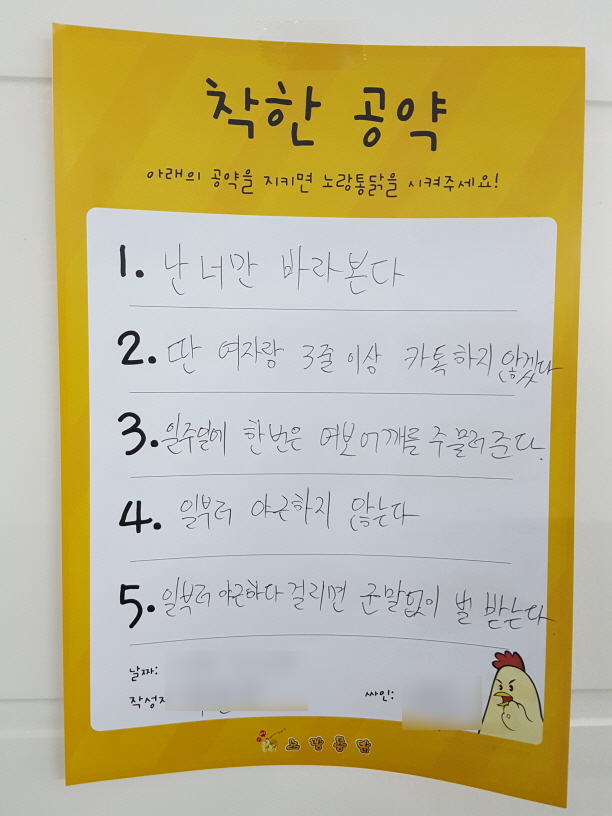 착한 공약
아래의 공약을 지키면 노랑통닭을 시켜주세요!
1. 난 너만 바라본다
2. 딴 여자랑 3줄 이상 카톡하지 않겠다
3. 일주일에 한번은 여보 어깨를 주물러준다.
4. 일부러 야근하지 않는다
5. 일부러 야근하다 걸리면 군말없이 벌 받는다
날짜:
작성자 싸인:
노랑통닭